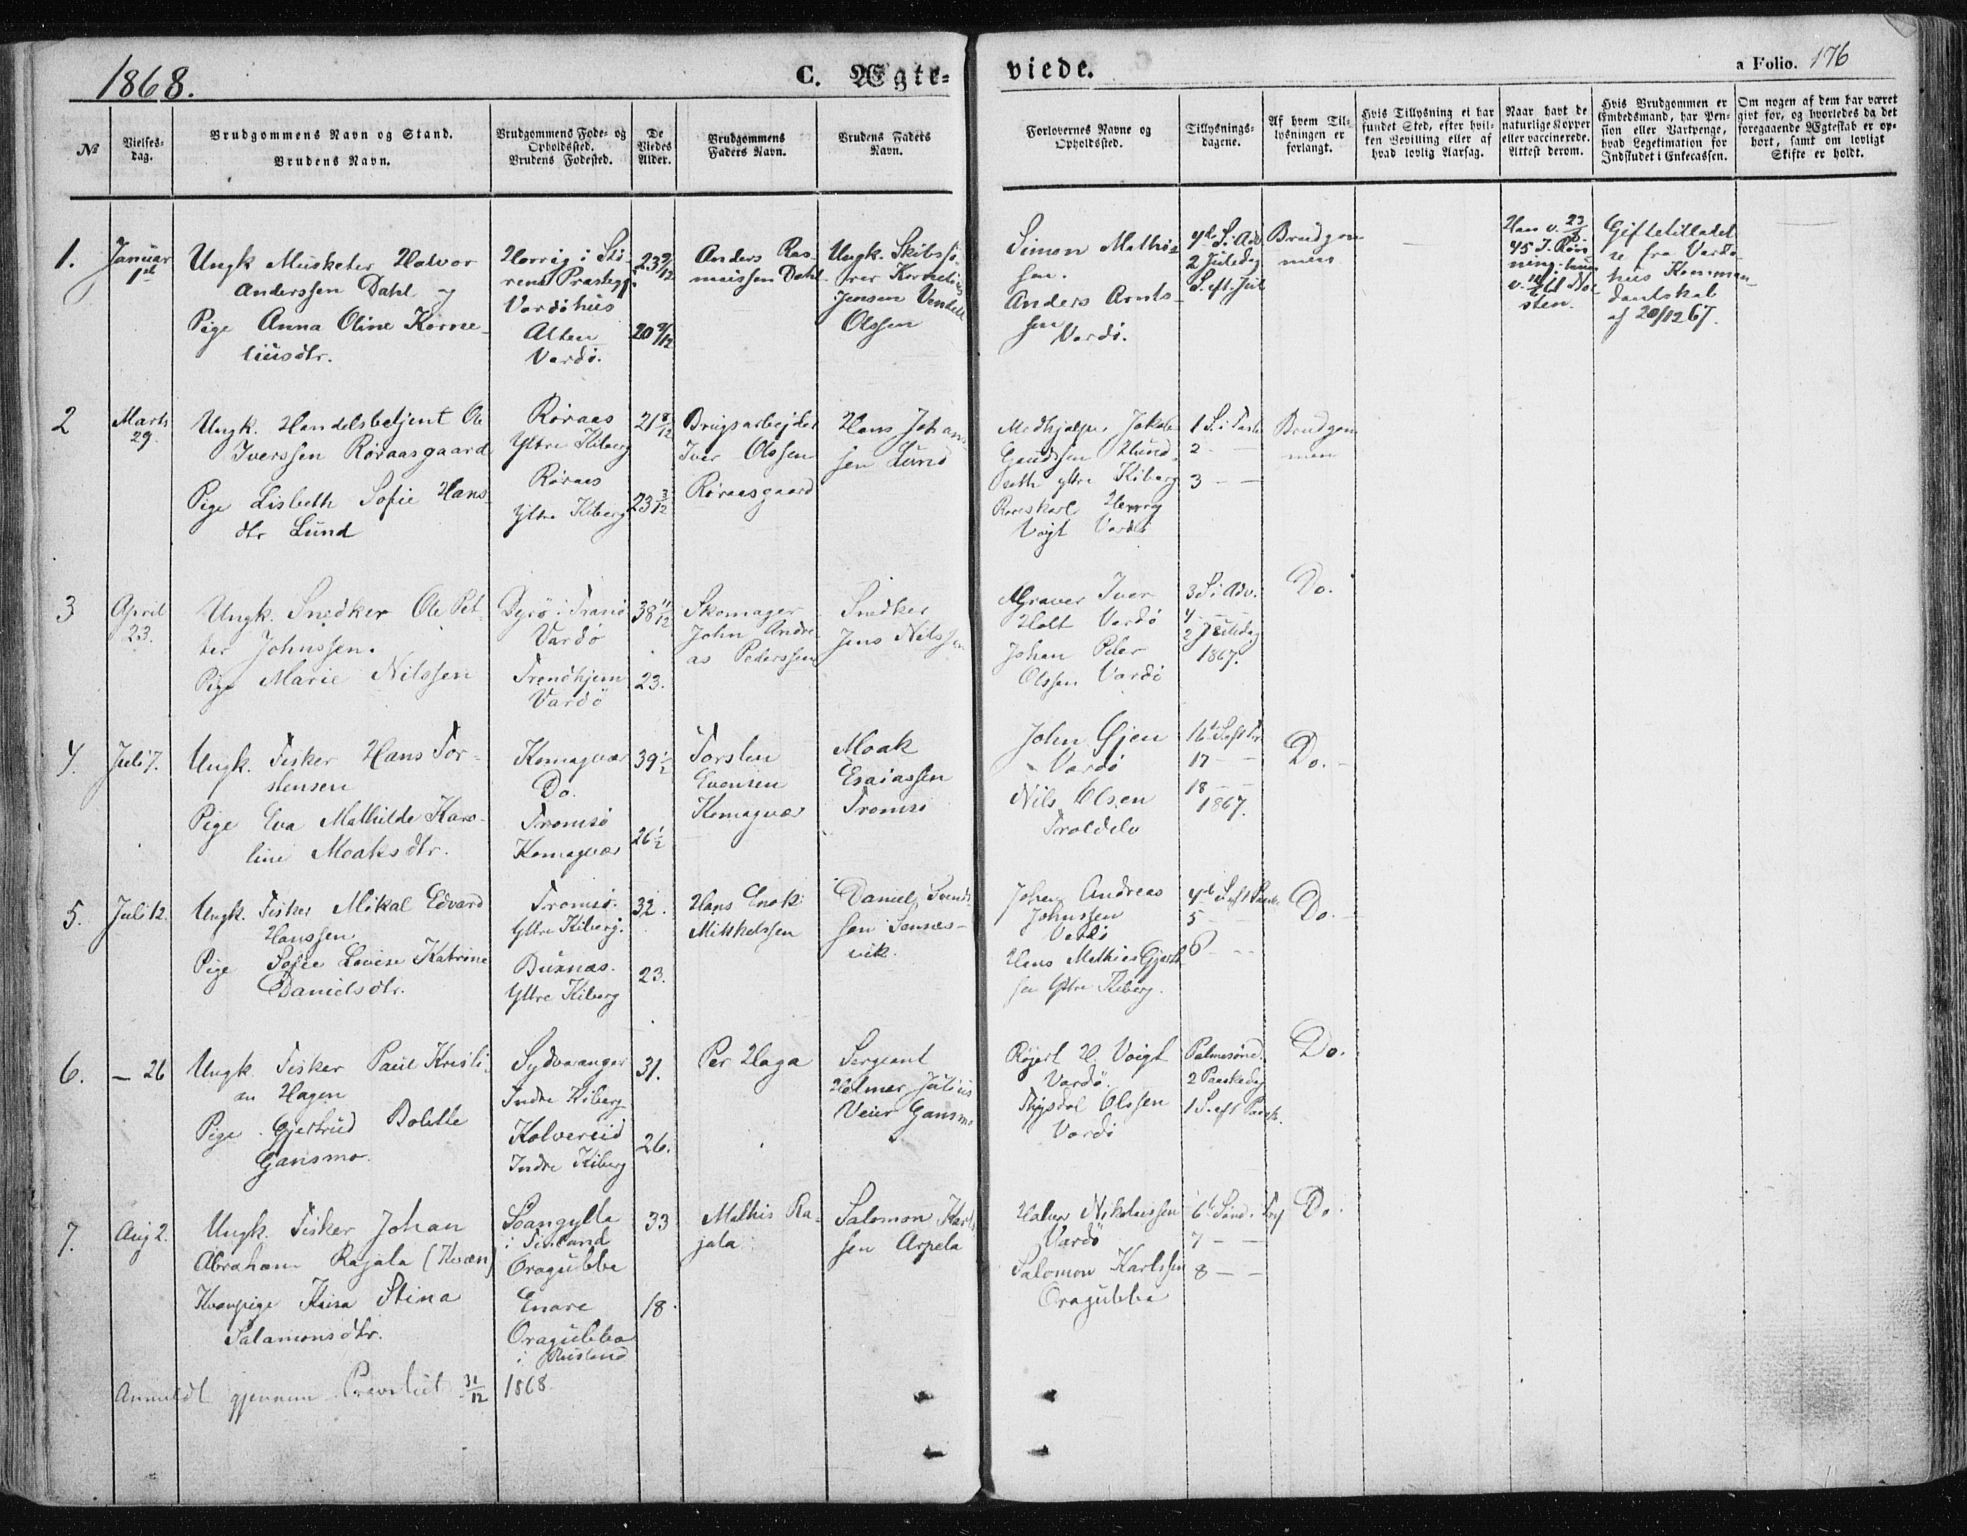 1868.
C. Ægte-
viede.
a Folio. 176
No
Vielses-
dag.
Brudgommens Navn og Stand.
Brudens Navn.
Brudgommens Føde- og
Opholdssted.
Brudens Fødested.
De
Viedes
Alder.
Brudgommens
Faders Navn.
Brudens Faders
Navn.
Forlovernes Navne og
Opholdssted.
Tillysnings-
dagene.
Af hvem Til-
lysningen er
forlangt.
Hvis Tillysning ei har
fundet Sted, efter hvil-
ken Bevilling eller af
hvad lovlig Aarsag.
Naar havt de
naturlige Kopper
eller vaccinerede.
Attest derom.
Hvis Brudgommen er
Embedsmand, har Pen-
sion eller Vartpenge,
hvad Legitimation for
Indskudet i Enkecassen.
Om nogen af dem har været
givt før, og hvorledes da det
foregaaende Ægteskab er op-
hørt, samt om lovligt
Skifte er holdt.
1.
Januar
1st
Ungk Musketer Halvor
Anderssen Dahl og
Pige Anna Oline Korne-
liusdtr.
Horrig i Stø-
rens Prästegj.
Vardøhus
Alten
Vardö.
23 9/12
20 9/12
Anders Ras-
mussen Dahl
Ungk. Skibsfø-
rer Kornelius
Jensen Vendell
Olssen
Simon Mathis-
sen.
Anders Arnts-
sen
Vardö.
4de S. i Adv
2 Juledag
S. eft. Jul
Brudgom-
men
Han v. 23
45 J.
sten.
Giftetilladel-
se fra Vardö-
hus Komman-
dantskab
af 20/12 67.
2
Marts
29.
Ungk. Handelsbetjent Ole
Iverssen Røraasgaard
Pige Lisbeth Sofie Hans-
dtr Lund
Røraas
Yttre Kiberg
Røraas
Yttre Kiberg
21 8/12
23 3/12
Brugsarbejder
Iver Olssen
Røraasgaard
Hans Johan-
sen Lund
Medhjelper Jakob
Hund-
seth yttre Kiberg
Henry
Voigt Vardö
1 S. i Faste
2 —
3 — —
Brudgom
men
3
April
23.
Ungk. Snedker Ole Pet-
ter Johnssen.
Pige Marie Nilssen
Dyrø i Tranø
Vardö
Trondhjem
Vardö
38 11/12
23.
Skomager
John Andre-
as Pederssen
Snedker
Jens Nilssen
Graver Iver
Holt Vardö
Johan Peter
Olssen Vardö
3 S. i Adv.
4 — —
2 Juledag
1867.
Do.
4.
Juli 7.
Ungk. Fisker Hans Tor-
stensen
Pige Eva Mathilde Karo-
line Moaksdtr.
Komagvær
Do.
Tromsö
Komagvær
39 1/2
26 1/2
Torsten
Evensen
Komagvær
Moak
Esaiassen
Tromsö
John Gjen
Vardö
Nils Olsen
Troldelv
16de S. eft Tr
17 — —
18 — —
1867.
Do.
5.
Juli 12.
Ungk. Fisker Mikal Edvard
Hanssen
Pige Sofie Lovise Katrine
Danielsdtr.
Tromsö.
Yttre Kiberg.
Buxnæs.
Yttre Kiberg
32.
23.
Hans Enok
Mikkelssen
Daniel Svend-
sen Sannæs-
vik.
Johan Andreas
Johnssen
Vardö
Hans Mathias
sen Yttre Kiberg.
4de S. eft Paask.
5 —
6 — —
Do.
6.
— 26
Ungk. Fisker Paul Kristi-
an Hagen
Pige Gjertrud Bolette
Gansmo.
Sydvaranger
Indre Kiberg
Kolvereid
Indre Kiberg
31.
26.
Per Haga
Sergeant
Holmer Julius
Veier Gansmo
H. Voigt
Vardö
Olssen
Vardö
Palmesönd.
2 Paaskedag
1 S. eft Paask.
Do.
7.
Aug 2.
Ungk. Fisker Johan
Abraham Rajala (Kvæn)
Kvænpige Kaisa Stina
Salamonsdtr.
Soangylla
i Finland
Oragubba
Enare
Oragubba
i Rusland
33
18.
Mathis Ra-
jala
Salomon Karls-
sen Arpela
Nikolaissen
Vardö
Salomon Karlssen
Oragubba
6te Sönd.
7 — —
8 — —
Do.
Anmeldt gjennem Provstiet 31/12 1868.